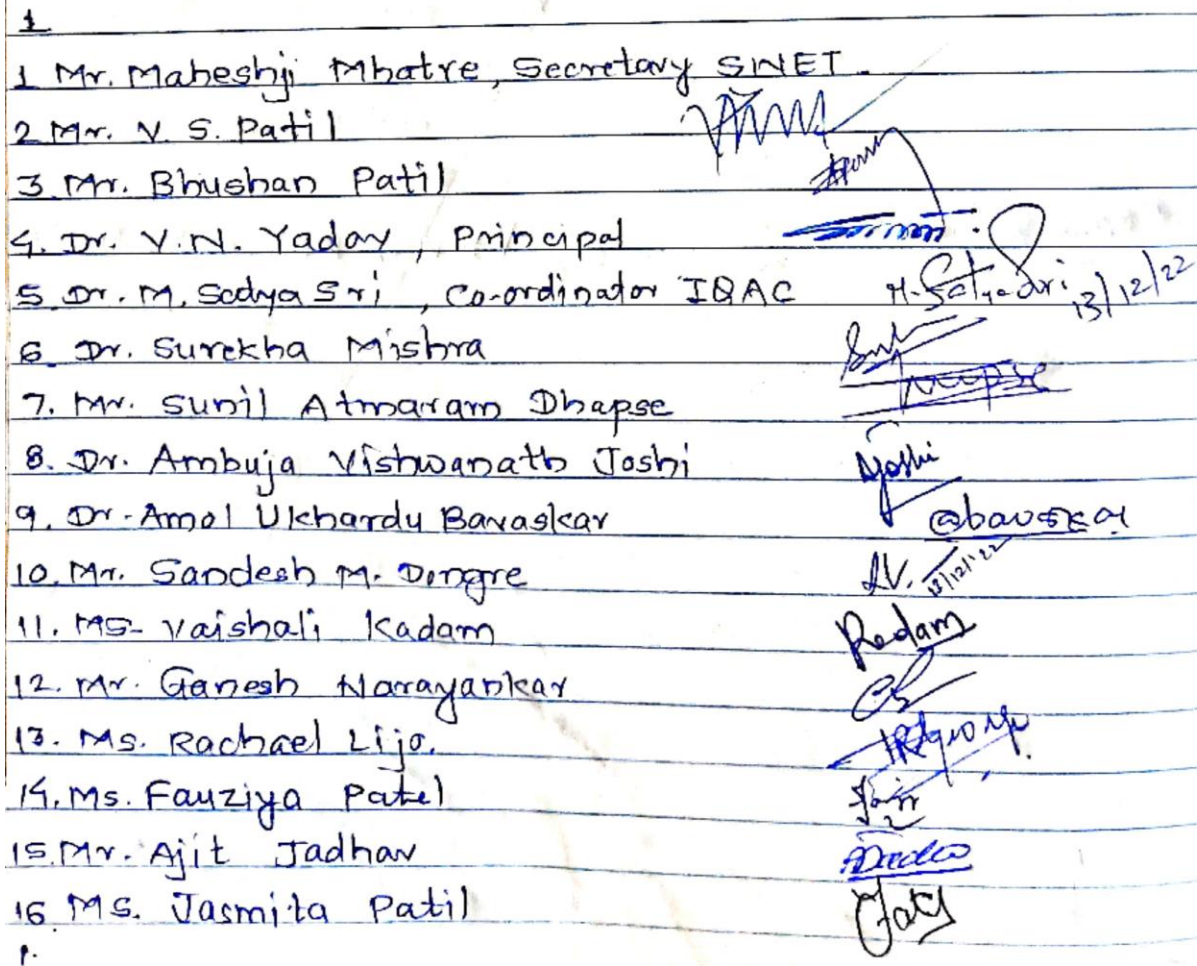 1
1 Mr. Maheshji Mhatre, Secretary SNET.
2 Mr. V. S. Patil
3. Mr. Bhushan Patil
4. Dr. V.N. Yadav, Principal
5 Dr. M. Sadya Sri, Co-ordinator IQAC M. Satya Sri 13/12/22
6. Dr. Surekha Mishra
7. Mr. Sunil Atmaram Dhapse
8. Dr. Ambuja Vishwanath Joshi Ajoshi
9. Dr. Amol Ukhardu Bavaskar @bavaskar
10. Mr. Sandesh M. Dongre 13/12/'22
11. MS. Vaishali Kadam
12. Mr. Ganesh Narayankar
13. Ms. Rachael Lijo.
14. Ms. Fauziya Patel
15. Mr. Ajit Jadhav
16 MS. Jasmita Patil